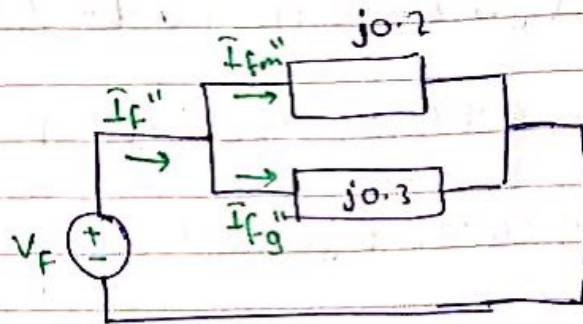 j0.2
I̅fm"
I̅f"
j0.3
I̅fg"
VF
+
-